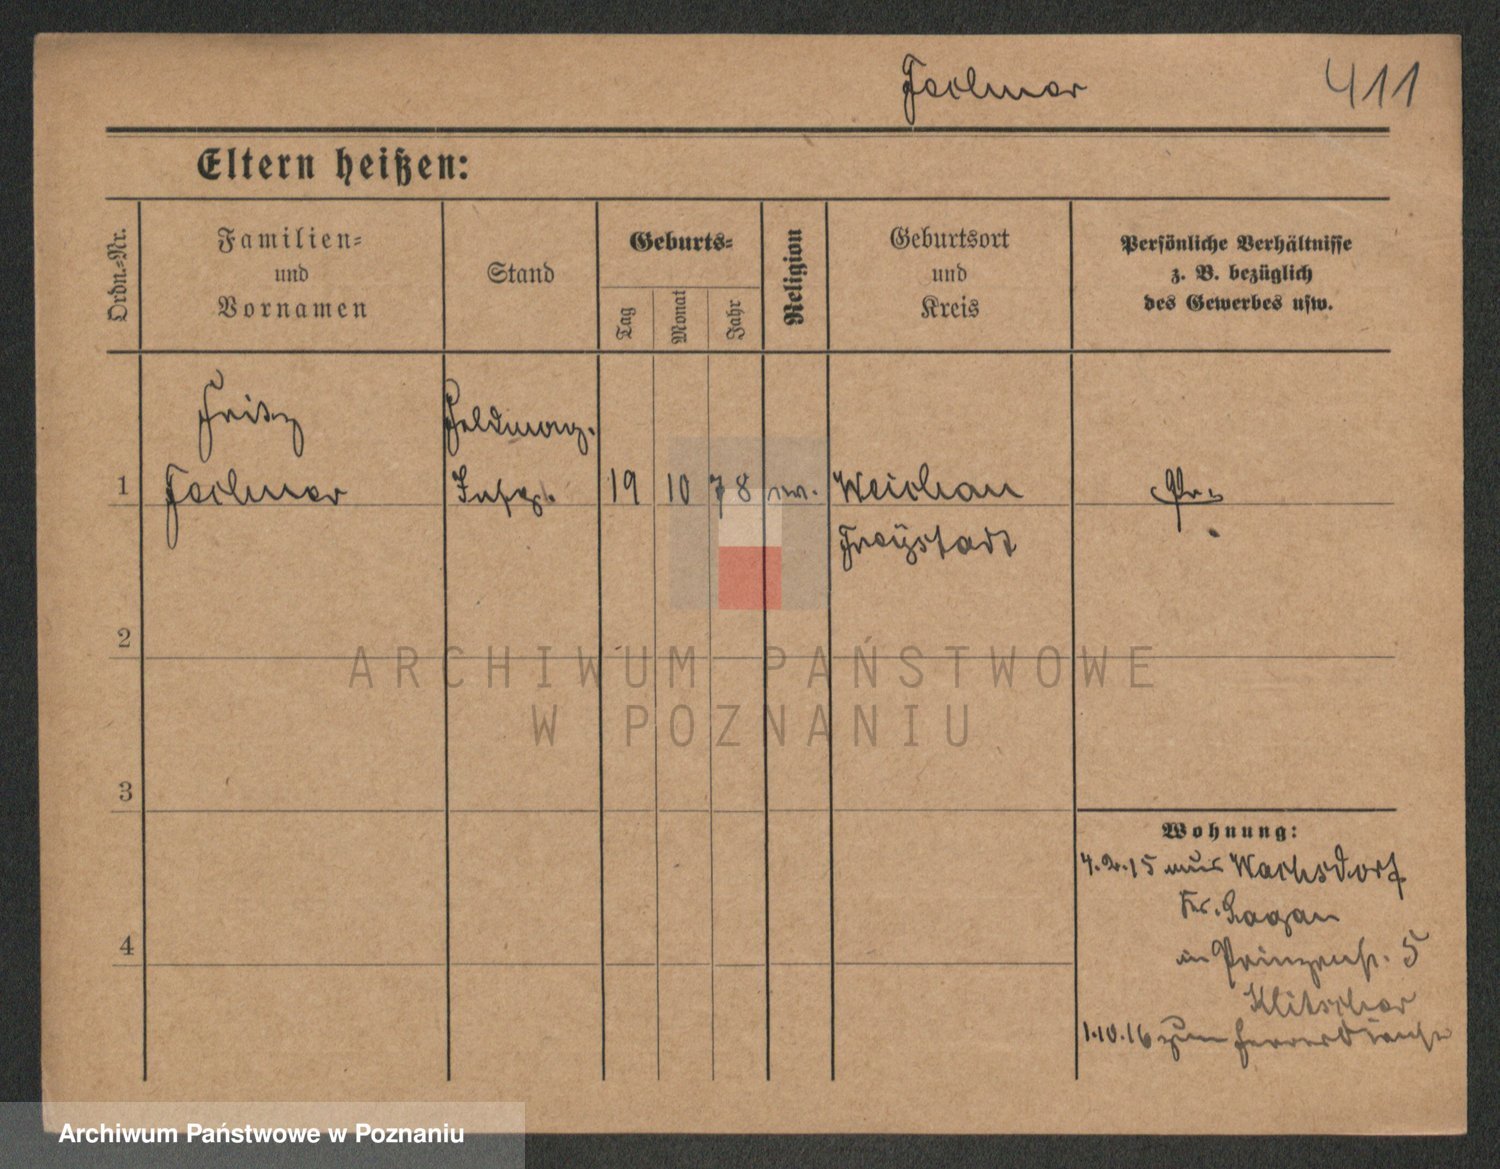 Fechner 411
Eltern heißen:
Ordn.-Nr.
Familien-
und
Vornamen
Stand
Geburts-
Tag
Monat
Jahr
Religion
Geburtsort
und
Kreis
Persönliche Verhältnisse
z. B. bezüglich
des Gewerbes usw.
Fritz
Feldmag.
1 Fechner Insp. 19 10 78 ev. Weichau Pr.
Freystadt
2
ARCHIWUM PAŃSTWOWE
W POZNANIU
3
Wohnung:
4.2.15 aus Wachsdorf
Kr. Sagan
in Prinzenstr. 5
4
Klitscher
1.10.16 zum Heeresdienst
Archiwum Państwowe w Poznaniu